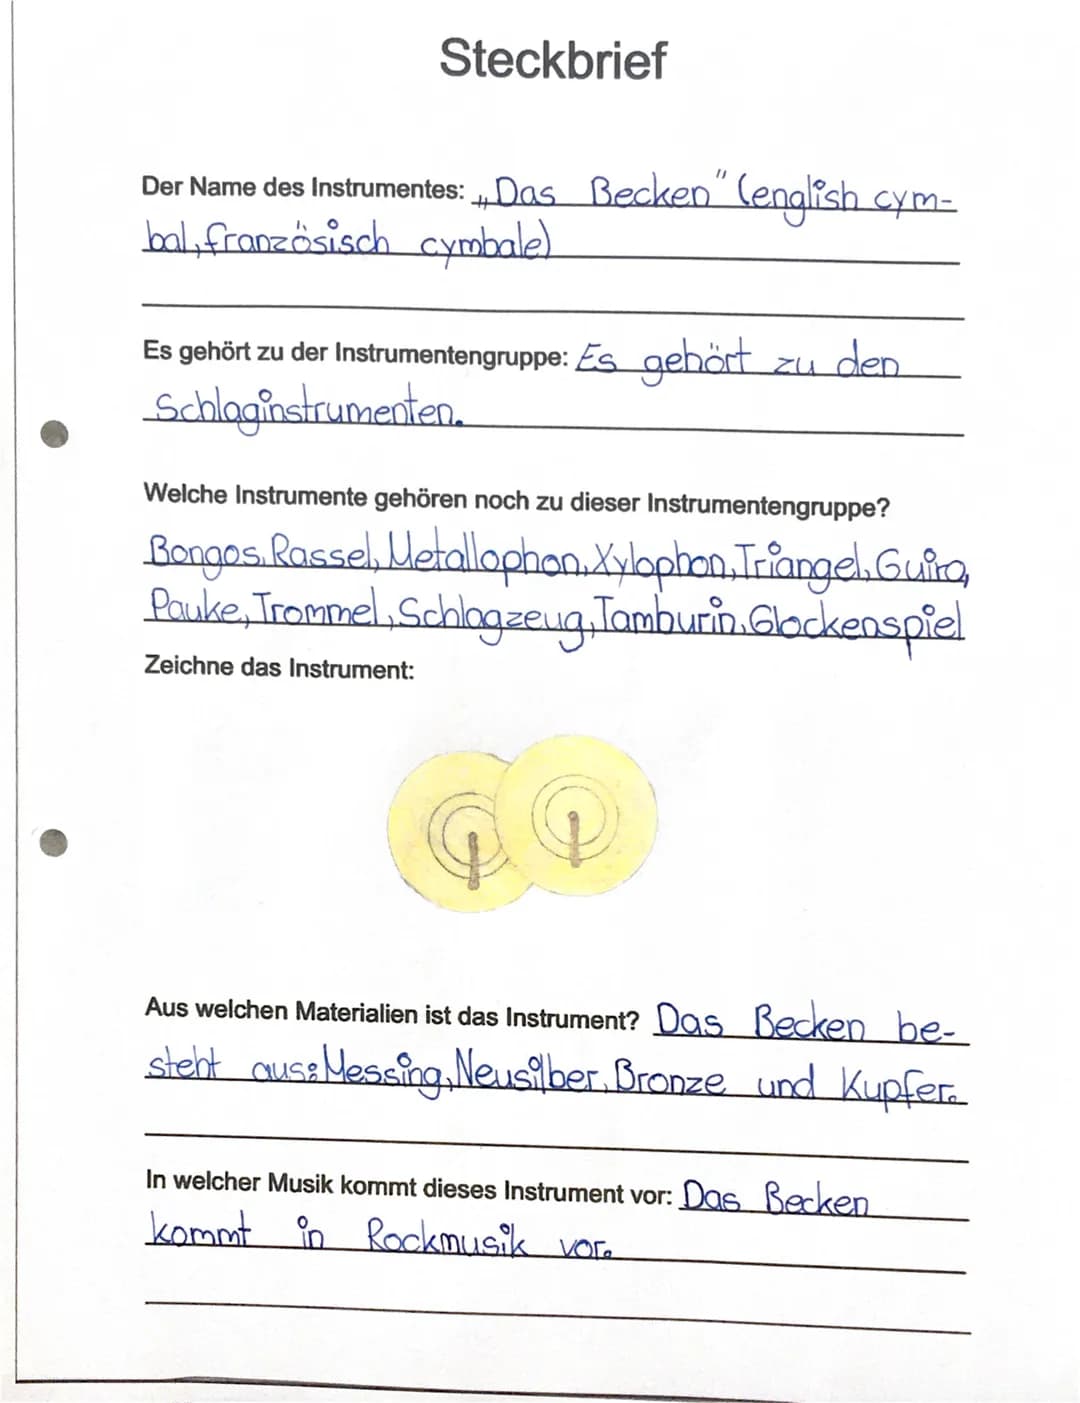 Steckbrief
Der Name des Instrumentes: „Das Becken" (english cym-
bal, französisch cymbale)
Es gehört zu der Instrumentengruppe: Es gehört zu den
Schlaginstrumenten.
Welche Instrumente gehören noch zu dieser Instrumentengruppe?
Bongos, Rassel, Metallophon, Xylophon, Triangel, Guiro,
Pauke, Trommel, Schlagzeug, Tamburin, Glockenspiel
Zeichne das Instrument:
Aus welchen Materialien ist das Instrument? Das Becken be-
steht aus: Messing, Neusilber, Bronze und Kupfer.
In welcher Musik kommt dieses Instrument vor: Das Becken
kommt in Rockmusik vor.